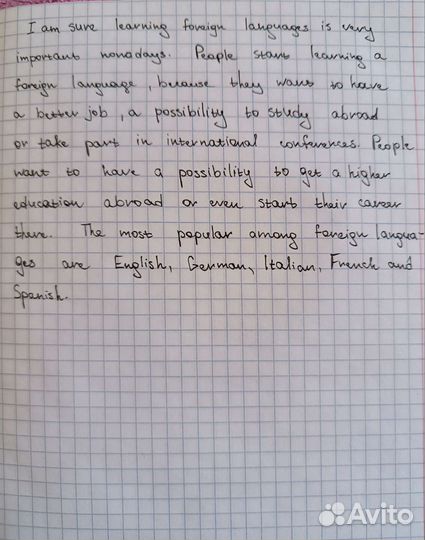 I am sure learning foreign languages is very
important nonodays. People start learning a
foreign language, because they want to have
a better job, a possibility to study abroad
or take part in international conferences. People
want to have a possibility to get a higher
education abroad or even start their career
there. The most popular among foreign langua-
ges are English, German, Italian, French and
Spanish.
Avito